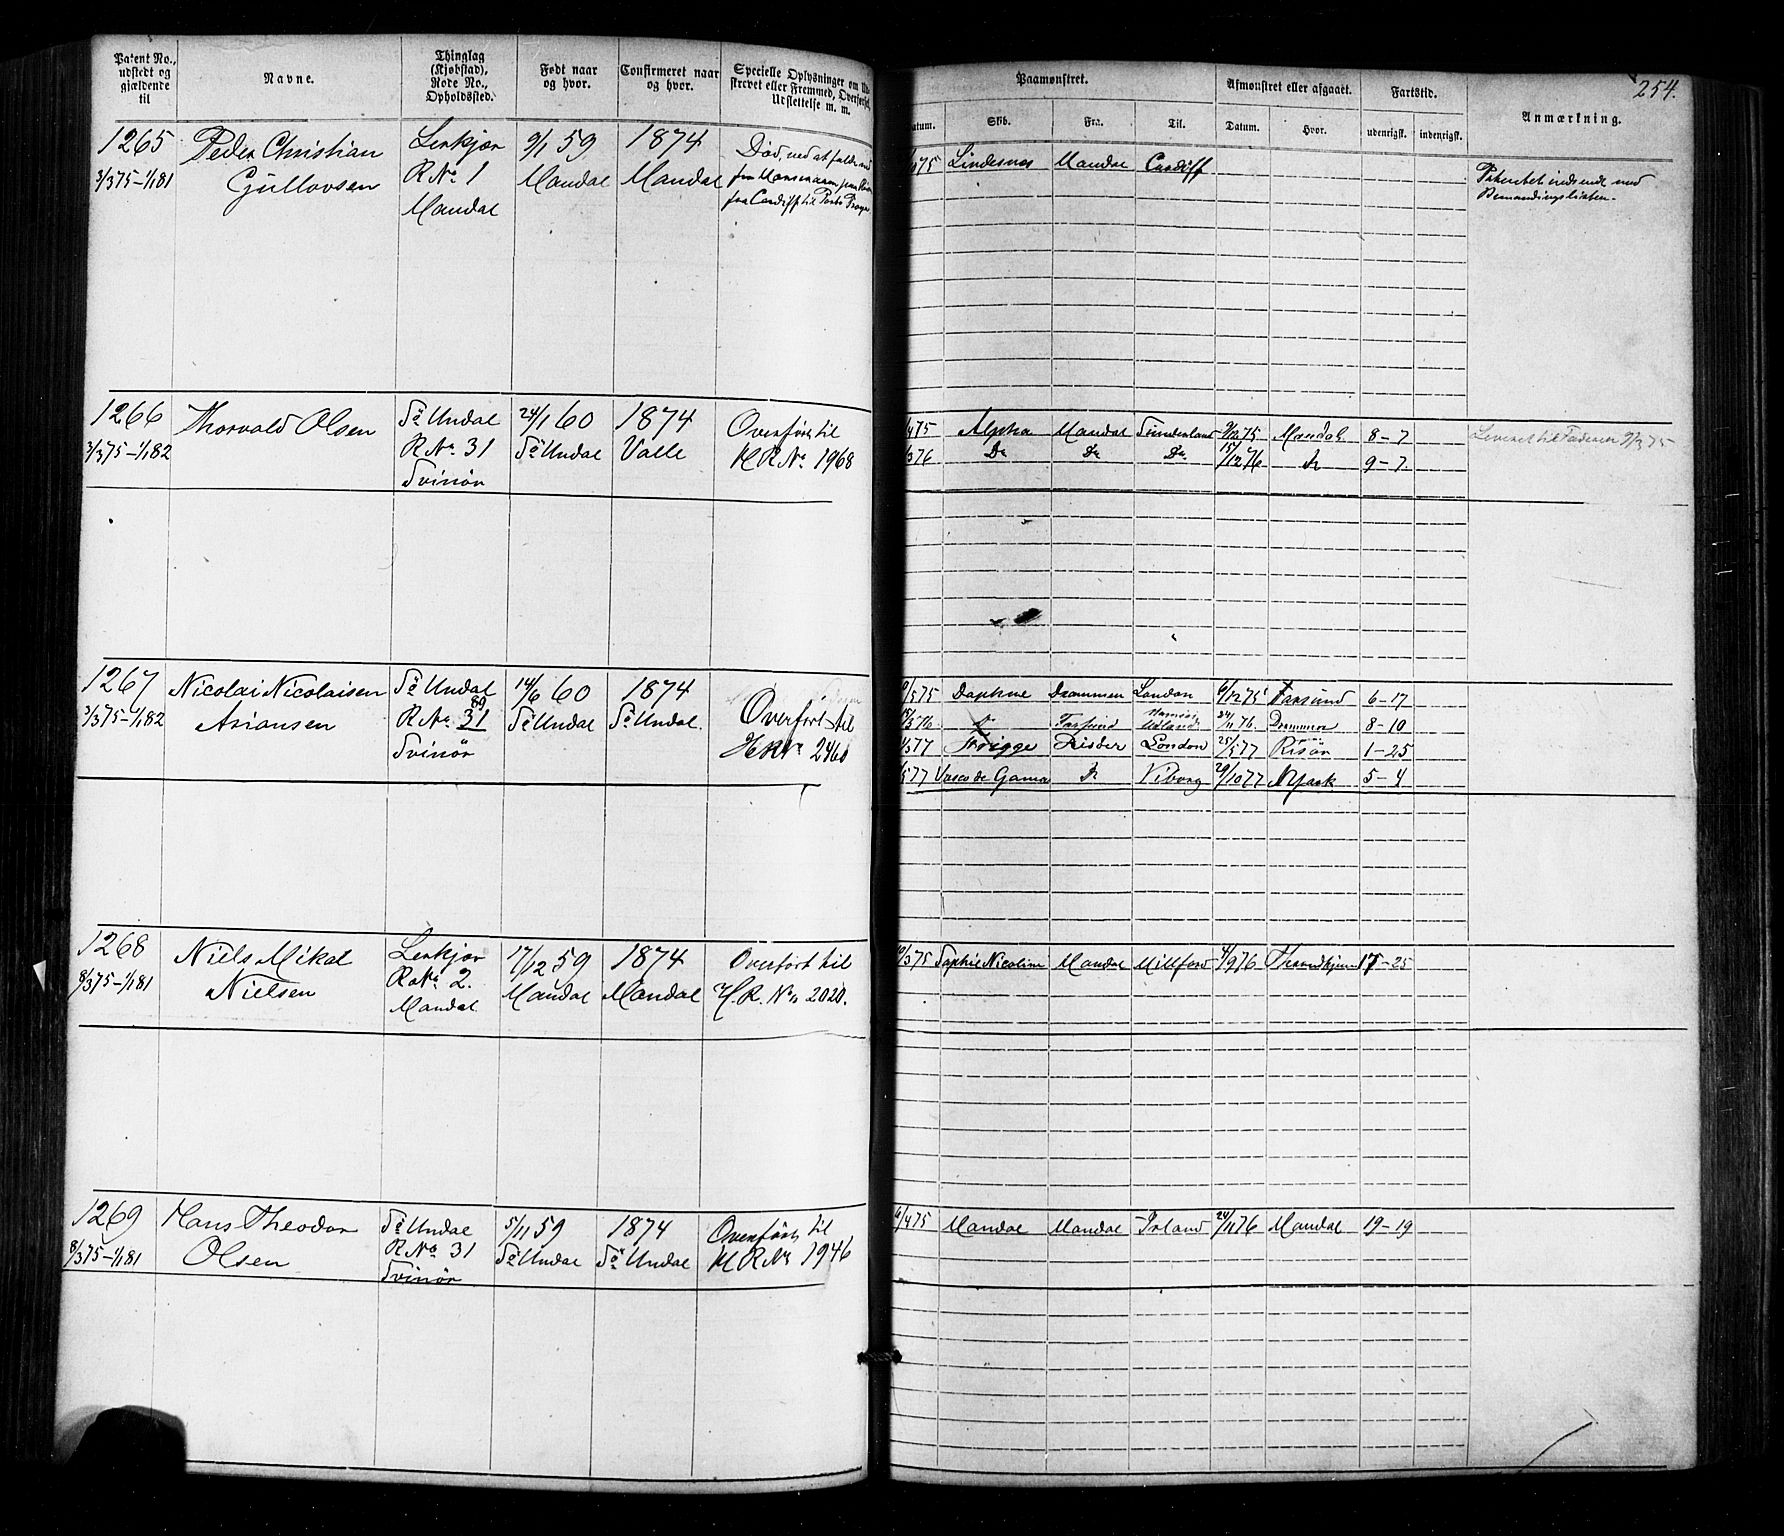 254.
Patent No., udstedt og gjældende til
Navne.
Thinglag (Kjøbstad), Rode No., Opholdssted.
Født naar og hvor.
Confirmeret naar og hvor.
Specielle Oplysninger om Ud-
skrevet eller Fremmed, Overførsel,
Udslettelse m. m.
Paamønstret.
Afmønstret eller afgaaet.
Fartstid.
Anmærkning.
Skib.
Fra.
Til.
Datum.
Hvor.
udenrigsk.
indenrigsk.
1265
3/375-1/181
Peder Christian
Gullovsen
Lenkjær
R No 1
Mandal
9/1 59
Mandal
1874
Mandal
Død, ved at falde ned
fra
fra Cardiff til Porto Praya
Lindesnæs Mandal Cardiff
Patentet indsendt med
Bemandingslisten.
1266
3/375-1/182
Thorvald Olsen
Sø Undal
R No 31
Svinør
24/1 60
Sø Undal
1874
Valle
Overført til
H R No 1968
Alpha Mandal Sunderland 9/1275 Mandal 8-7
Do Do Do 15/1276 do 9-7
Leveret til Faderen
1267
3/375-1/182
Nicolai Nicolaisen
Asiansen
Sø Undal
89
R No 31
Svinør
14/6 60
Sø Undal
1874
Sø Undal.
Overført til
H R No 2460
Daphne Drammen London 6/1275 Farsund 6-17
do Farsund Udland 24/1176. Drammen 8-10
Trigge Risøer London 25/577 Risør 1-25
Vasco de Gama do Viborg 29/1077 N York 5-4
1268
8/375-1/181
Niels Mikal
Nielsen
Lenkjær
R No 2.
Mandal
17/12 59
Mandal
1874
Mandal
Overført til
H. R. No 2020.
10/375 Sophie Nicoline Mandal Millford 4/976 Throndhjem 17-25
1269
8/375-1/181
Hans Theodor
Olsen
Sø Undal
R No 31
Svinør
5/11 59
Sø Undal
1874
Sø Undal
Overført til
H R No 1946
6/475 Mandal Mandal Irland 24/1176 Mandal 19-19